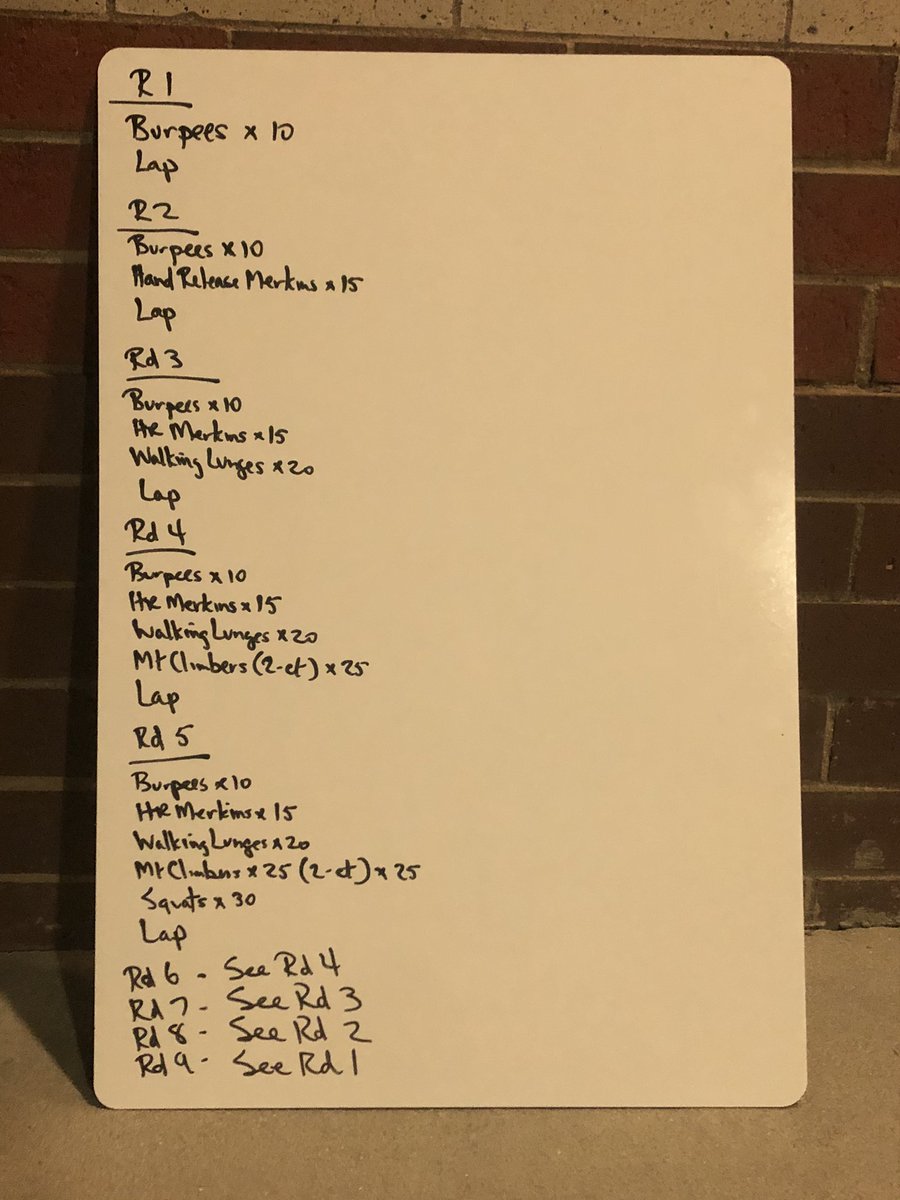 R 1
Burpees x 10
Lap
R 2
Burpees x 10
Hand Release Merkins x 15
Lap
Rd 3
Burpees x 10
HR Merkins x 15
Walking Lunges x 20
Lap
Rd 4
Burpees x 10
HR Merkins x 15
Walking Lunges x 20
Mt Climbers (2-ct) x 25
Lap
Rd 5
Burpees x 10
HR Merkins x 15
Walking Lunges x 20
Mt Climbers x 25 (2-ct) x 25
Squats x 30
Lap
Rd 6 - See Rd 4
Rd 7 - See Rd 3
Rd 8 - See Rd 2
Rd 9 - See Rd 1